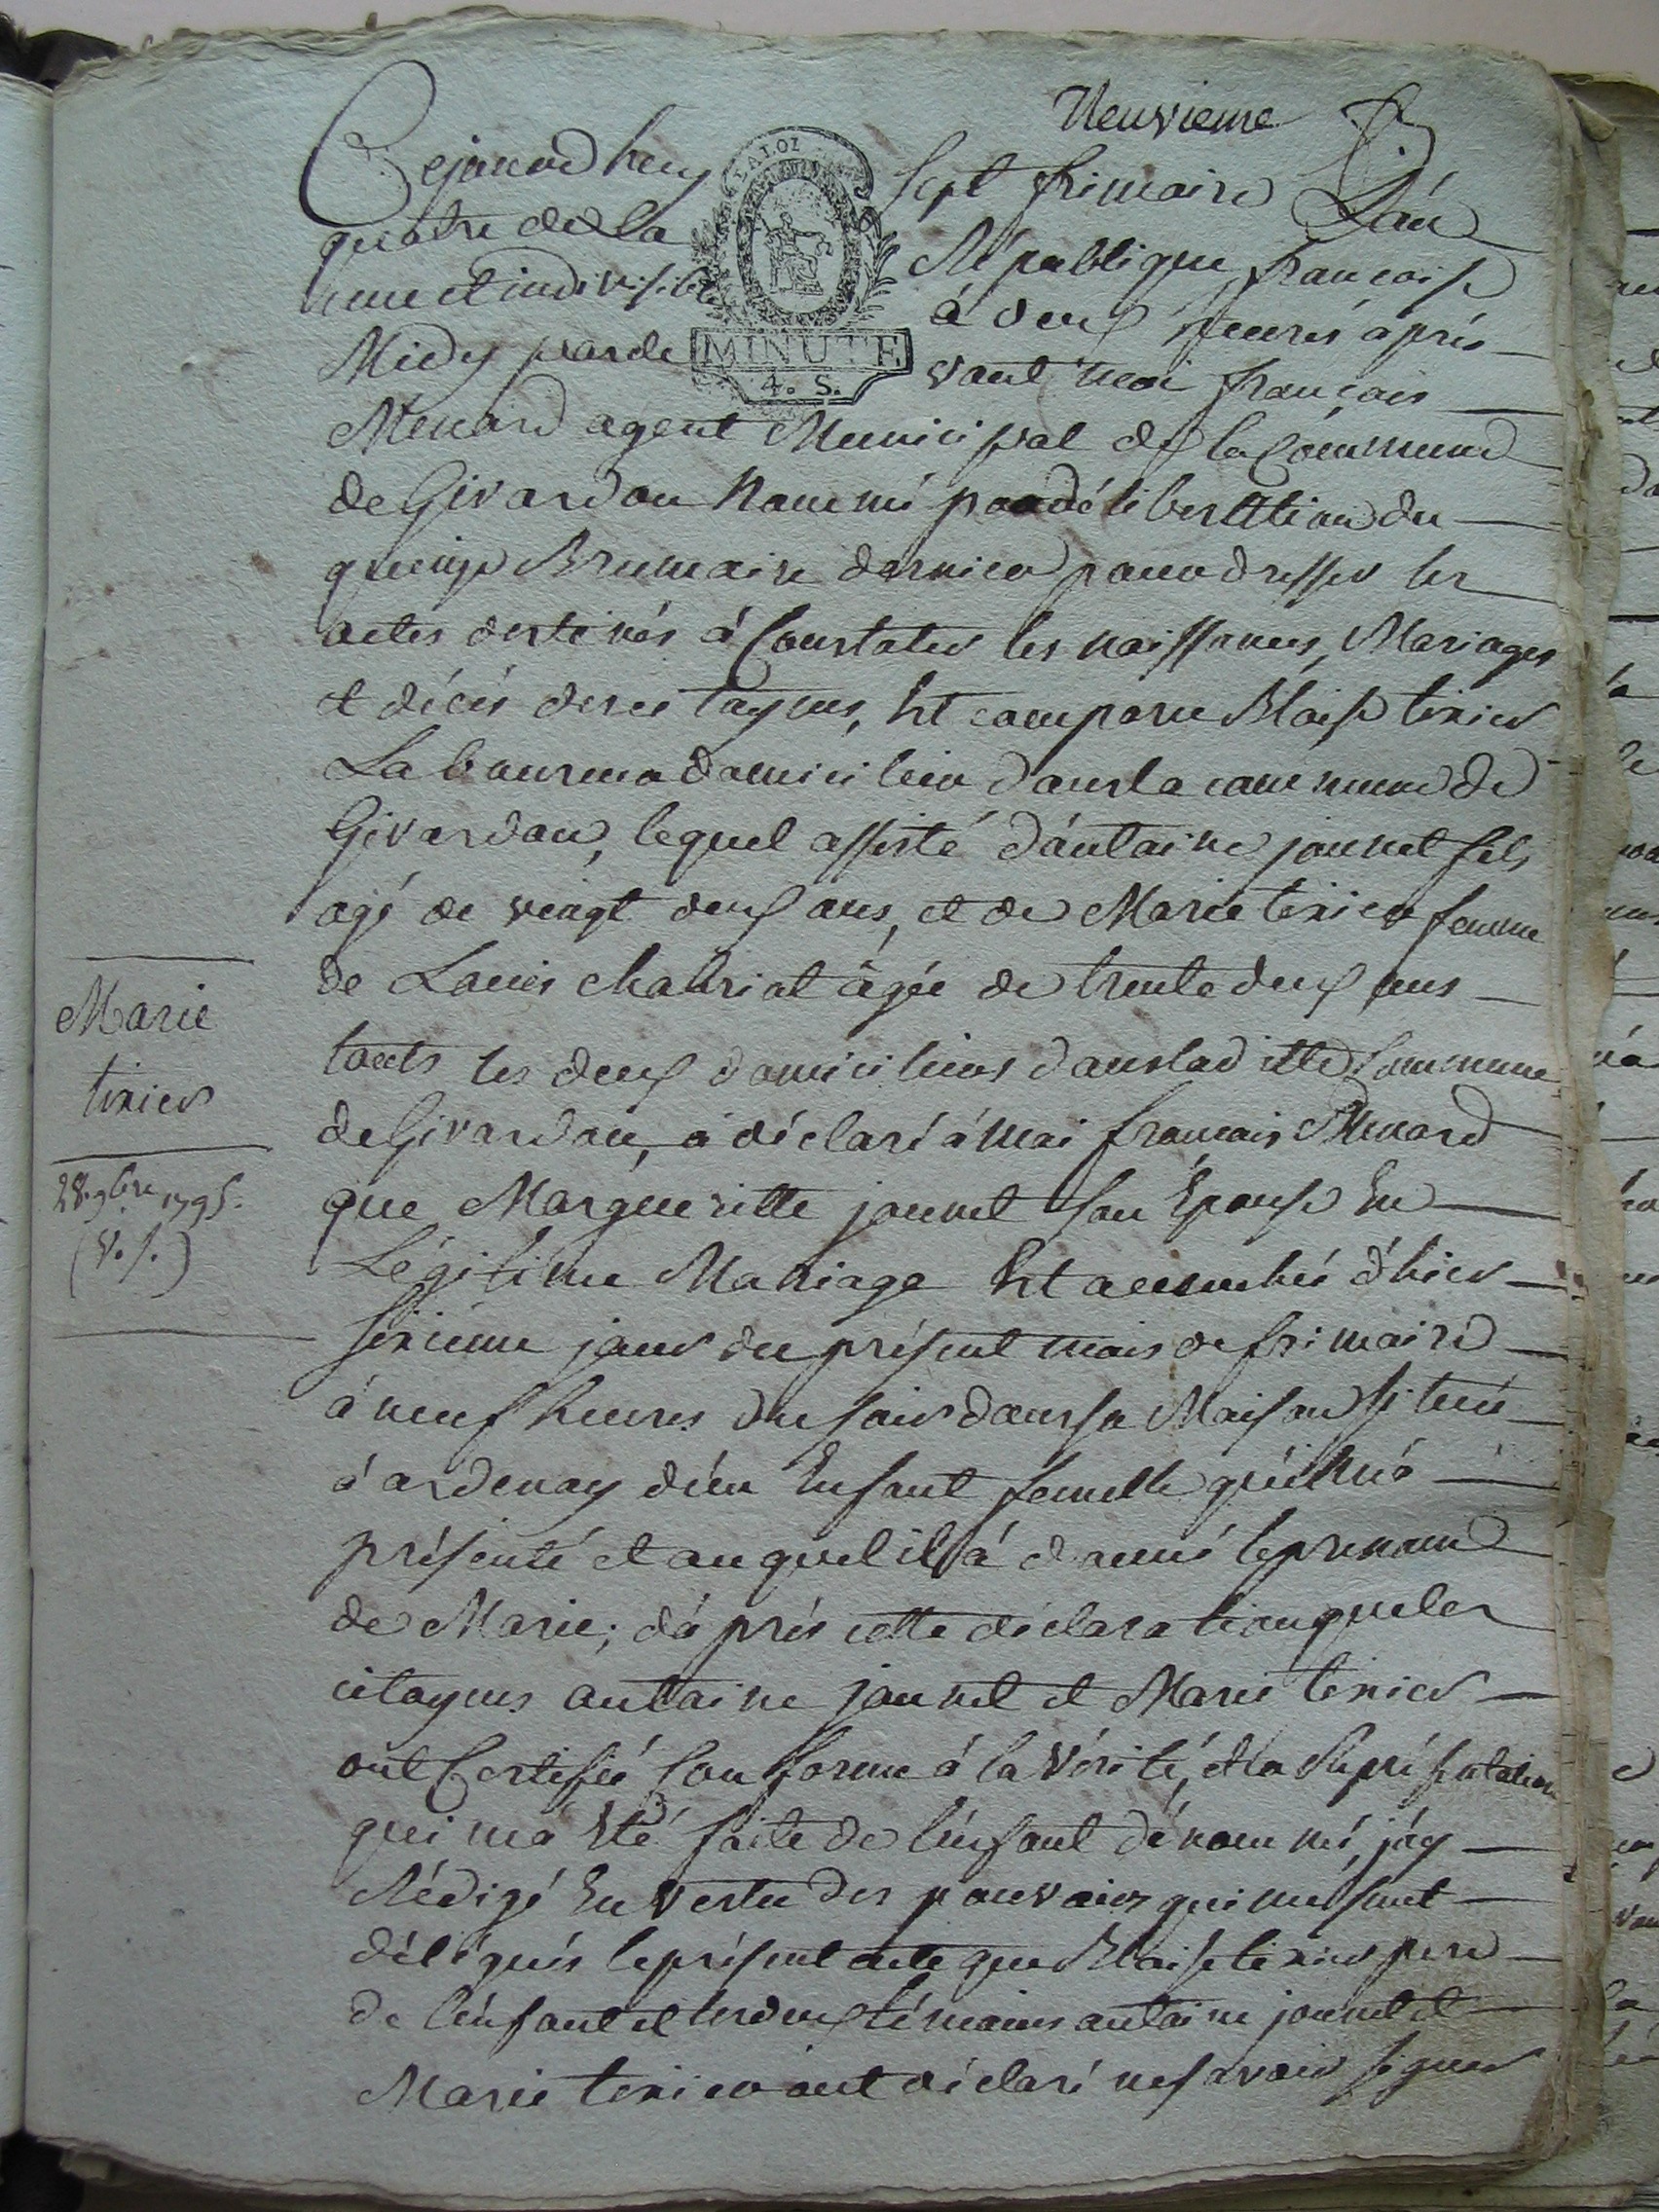 Neuvieme
Cejourdhuy sept frimaire Lán
quatre de la République françoise
une et indivisible à deux heures après
Midy parde vant moi françois
Menard agent Municipal de la Commune
de Givardon nommé par délibération du
quinze Brumaire dernier pour dresser les
actes destinés à Constater les naissances, Mariages
et décès des citoyens, Est comparu Blaise tixier
Laboureur domicilier dans la commune de
Givardon, lequel assisté d'antoine jounet fils
agé de vingt deux ans, et de Marie tixier femme
de Louis chabriat âgée de trente deux ans
touts les deux domiciliers dans laditte Commune
de Givardon, à déclaré à moi françois Menard
que Margueritte jounet son Epouse En
Légitime Mariage Est accouchée d'hier
sixieme jour du présent mois de frimaire
à neuf heures du soir dans sa Maison située
à ardenay d'un Enfant femelle qu'il m'à
présenté et au quel il à donné le prenom
de Marie; d'après cette déclaration que les
citoyens antoine jounet et Marie tixier
ont Certifié Conforme à la Vérité, et la Représentation
qui m'a Eté faite de l'enfant dénommé, j'ay
Rédigé En vertu des pouvoirs qui me sont
délégués le présent acte que Blaise tixier pere
de l'enfant et les deux témoins antoine jounet et
Marie tixier ont déclaré ne savoir signer
LA LOI
MINUTE
4. S.
Marie
tixier
28. 9bre 1795.
(V. s.)